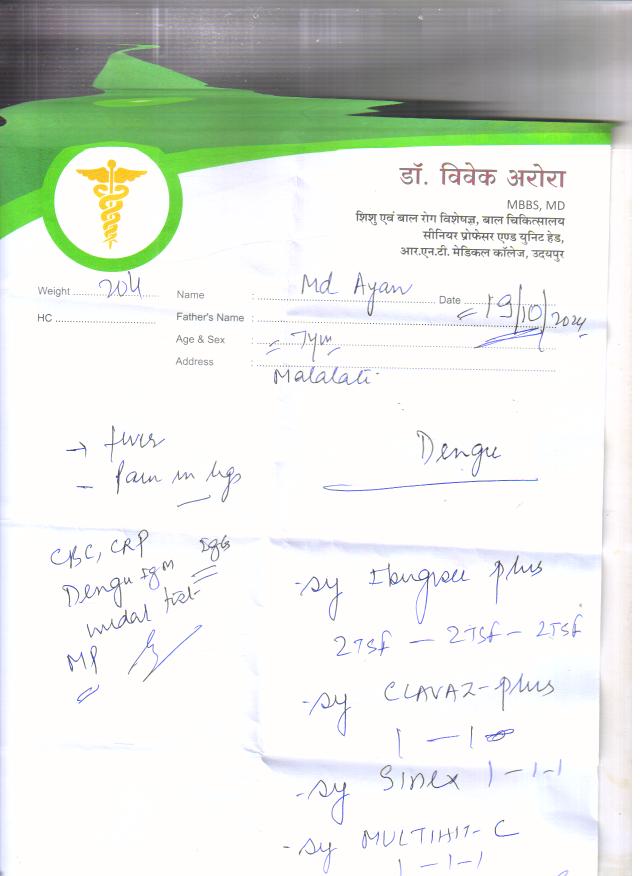 डॉ. विवेक अरोरा
MBBS, MD
शिशु एवं बाल रोग विशेषज्ञ, बाल चिकित्सालय
सीनियर प्रोफेसर एण्ड युनिट हेड,
आर.एन.टी. मेडिकल कॉलेज, उदयपुर
Weight
Name : Md Ayan Date 19/10/2024
HC
Father's Name :
Age & Sex : 7ym
Address :
Pain in legs
Dengu
CBC, CRP
Dengu Igm IgG
widal test
MP
- sy plus
2Tsf — 2Tsf — 2Tsf
- sy CLAVAZ-plus
1 — 1
- sy Sinex 1-1-1
- sy MULTIHIT-C
1-1-1